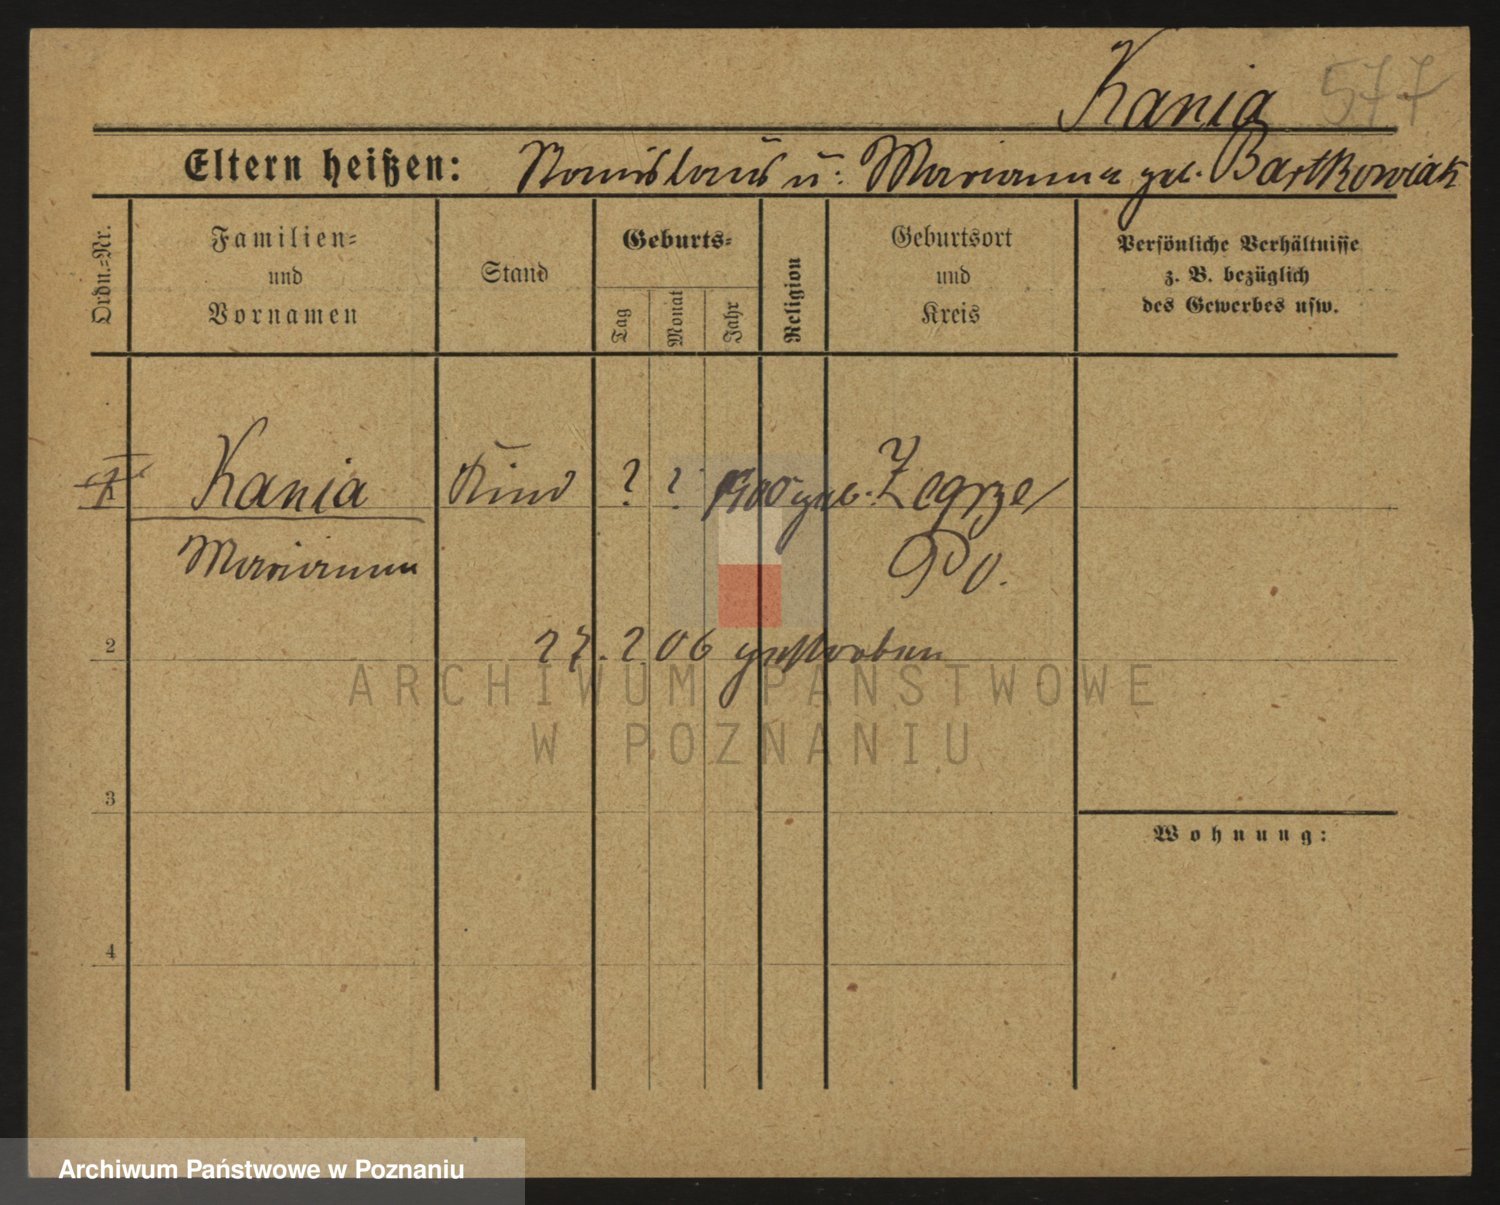 Kania 577
Eltern heißen: Stanislaus u. Marianna geb. Bartkowiak
Ordn.-Nr.
Familien-
und
Vornamen
Stand
Geburts-
Tag
Monat
Jahr
Religion
Geburtsort
und
Kreis
Persönliche Verhältnisse
z. B. bezüglich
des Gewerbes usw.
Kania Kind ? ? geb. Zegrze/
Marianna Po.
2 27. 2 06 gestorben
ARCHIWUM PAŃSTWOWE
W POZNANIU
3
Wohnung:
4
Archiwum Państwowe w Poznaniu